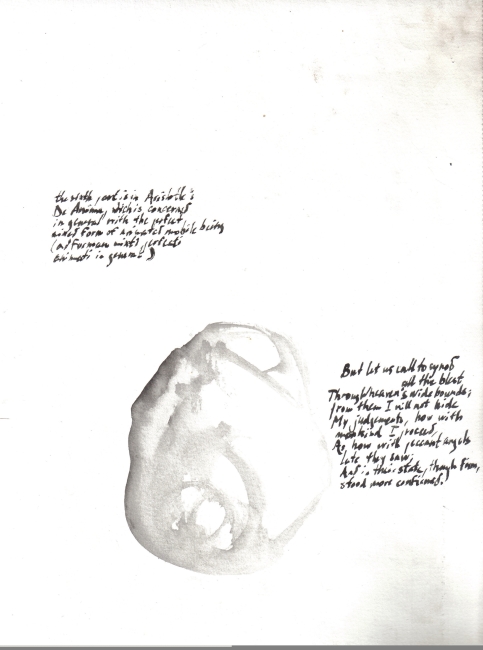 the sixth part is in Aristotle's
De Anima, which is concerned
in general with the perfect
mixed form of animated mobile being
in general
But let us call to synod
all the blest
Through heaven's wide bounds;
from them I will not hide
My judgements, how with
mankind I proceed,
As how with peccant angels
late they saw;
And in their state, though firm,
stood more confirmed.